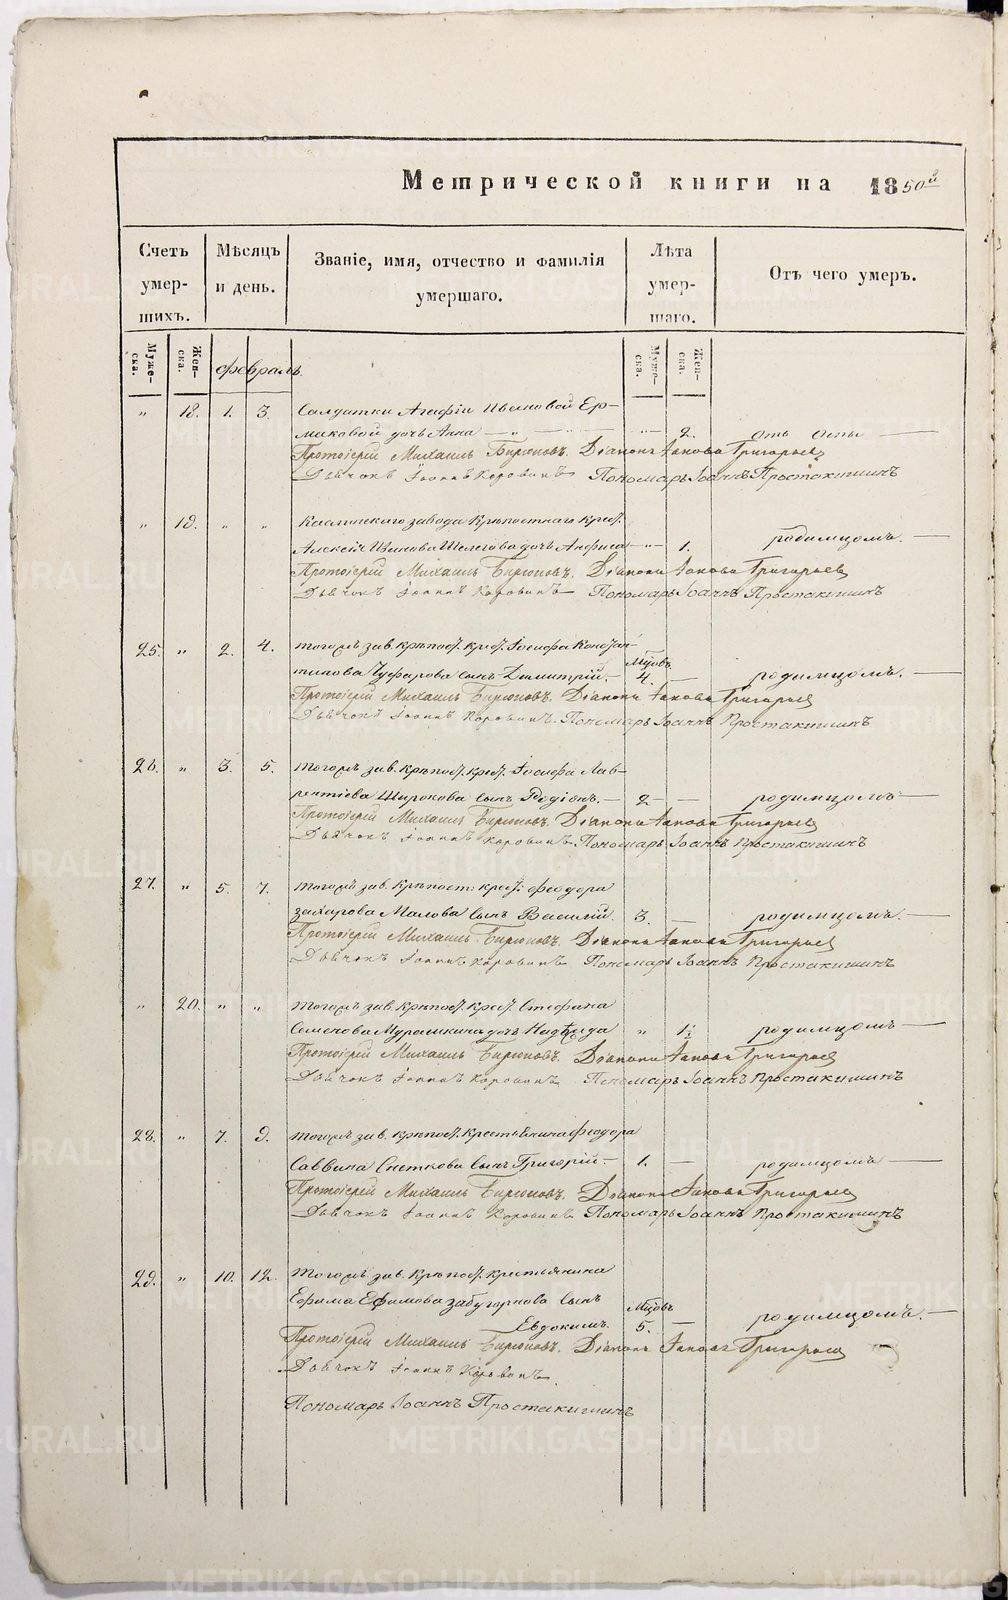 Метрической книги на 1850й
Счетъ умер- шихъ.
Мѣсяцъ и день.
Званіе, имя, отчество и фамилія умершаго.
Лѣта умер- шаго.
Отъ чего умеръ.
Муже- ска. Жен- ска. февраль. Муже- ска. Жен- ска.
" 18. 1. 3. Солдатки Агафіи Ивановой Ер-
маковой дочь Анна — " — " — 2. отъ оспы —
Протоіерей Михаилъ Бирюковъ. Діаконъ Іаковъ Григорьев
Дьячокъ Іоаннъ Коровинъ Пономарь Іоаннъ Простакишинъ
" 19. " " Каслинскаго завода крѣпостнаго крест.
Алексія Иванова дочь Анфиса — " — 1. родимцомъ. —
Протоіерей Михаилъ Бирюковъ. Діаконъ Іаковъ Григорьев
Дьячокъ Іоаннъ Коровинъ — Пономарь Іоаннъ Простакишинъ
25. " 2. 4. тогожъ зав. крѣпост. крест. Іосифа Констан-
тинова Чуфарова сынъ Димитрій. — Мцовъ 4. — родимцомъ. —
Протоіерей Михаилъ Бирюковъ. Діаконъ Іаковъ Григорьев
Дьячокъ Іоаннъ Коровинъ. Пономарь Іоаннъ Простакишинъ
26. " 3. 5. тогожъ зав. крѣпост. крест. Іосифа Лав-
рентіева Широкова сынъ Родіонъ. — 2 — — родимцомъ —
Протоіерей Михаилъ Бирюковъ. Діаконъ Іаковъ Григорьев
Дьячокъ Іоаннъ Коровинъ. Пономарь Іоаннъ Простакишинъ
27. " 5. 7. тогожъ зав. крѣпост: крест. Феодора
Захарова Малова сынъ Василій. 3. — родимцомъ. —
Протоіерей Михаилъ Бирюковъ. Діаконъ Іаковъ Григорьев
Дьячокъ Іоаннъ Коровинъ Пономарь Іоаннъ Простакишинъ
" 20. " " тогожъ зав. крѣпост. крест. Стефана
Семенова Мурашкина дочь Надежда " 1½ родимцомъ —
Протоіерей Михаилъ Бирюковъ. Діаконъ Іаковъ Григорьев
Дьячокъ Іоаннъ Коровинъ Пономарь Іоаннъ Простакишинъ
28. " 7. 9. тогожъ зав. крѣпост. крестьянина Феодора
Саввина Снеткова сынъ Григорій — 1. — родимцомъ —
Протоіерей Михаилъ Бирюковъ. Діаконъ Іаковъ Григорьев
Дьячокъ Іоаннъ Коровинъ Пономарь Іоаннъ Простакишинъ
29. " 10. 12. тогожъ зав. крѣпост. крестьянина
Ефима Ефимова Забугорнова сынъ
Евдокимъ. Мцовъ 5. — родимцомъ. —
Протоіерей Михаилъ Бирюковъ. Діаконъ Іаковъ Григорьев
Дьячокъ Іоаннъ Коровинъ
Пономарь Іоаннъ Простакишинъ
METRIKI.GASO-URAL.RU